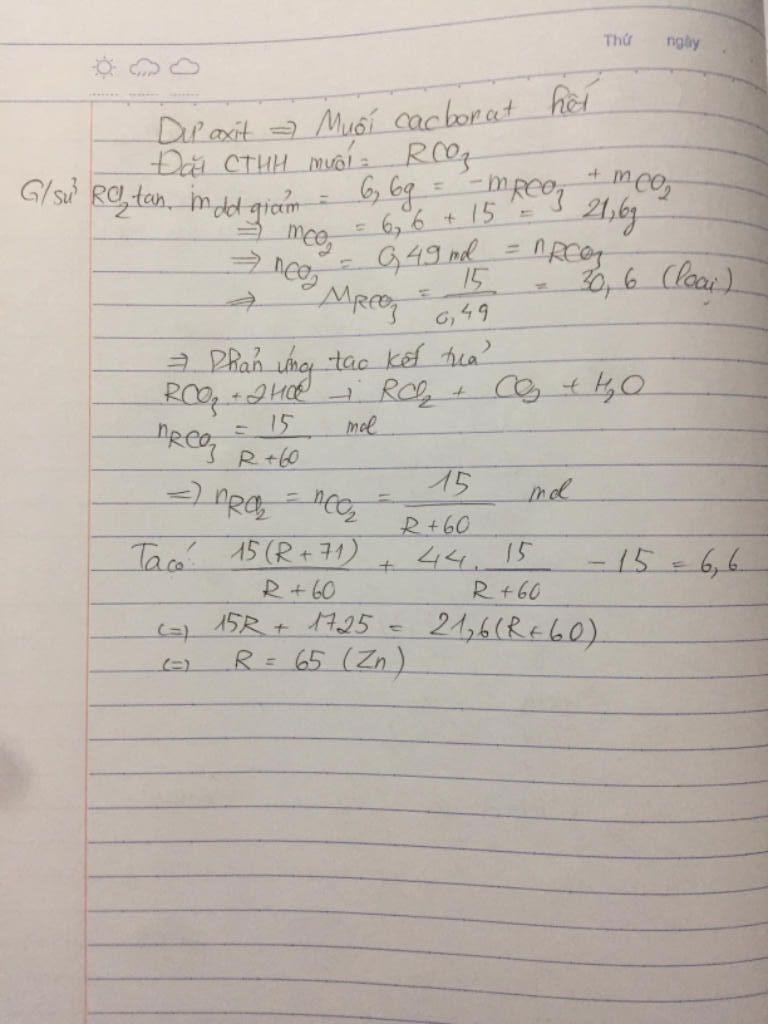 Thứ ngày
Dư axit => Muối cacbonat hết
Đặt CTHH muối = RCO3
G/sử RCl2 tan. mdd giảm = 6,6g = -mRCO3 + mCO2
=> mCO2 = 6,6 + 15 = 21,6g
=> nCO2 = 0,49 mol = nRCO3
=> MRCO3 = 15/0,49 = 30,6 (loại)
=> Phản ứng tạo kết tủa
RCO3 + 2HCl → RCl2 + CO2 + H2O
nRCO3 = 15/(R+60) mol
=> nRCl2 = nCO2 = 15/(R+60) mol
Ta có: 15(R+71)/(R+60) + 44. 15/(R+60) - 15 = 6,6
<=> 15R + 1725 = 21,6(R+60)
<=> R = 65 (Zn)